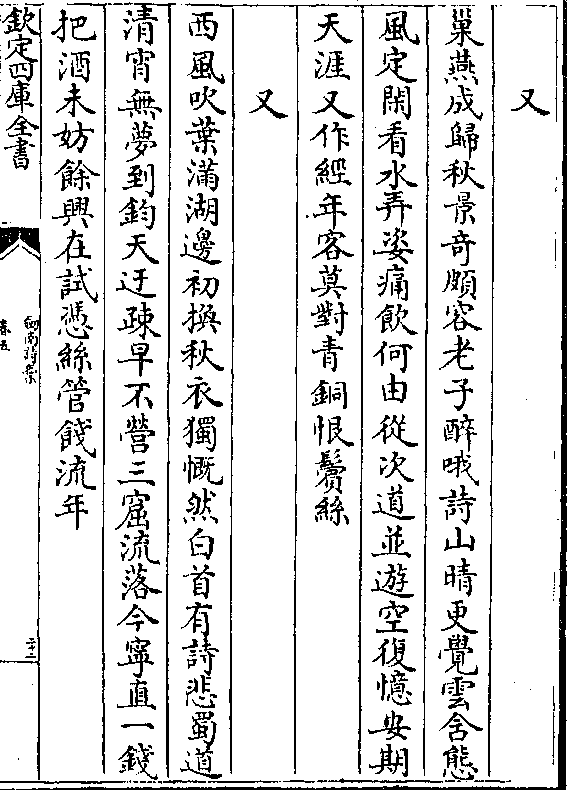 又
巢燕成歸秋景奇頗容老子醉哦詩山晴更覺雲含態
風定閑看水弄姿痛飲何由從次道並遊空復憶安期
天涯又作經年客莫對青銅恨鬢絲
又
西風吹葉滿湖邊初換秋衣獨慨然白首有詩悲蜀道
清宵無夢到鈞天迂疎早不營三窟流落今寧直一錢
把酒未妨餘興在試憑絲管餞流年
欽定四庫全書
劒南詩稾
卷五